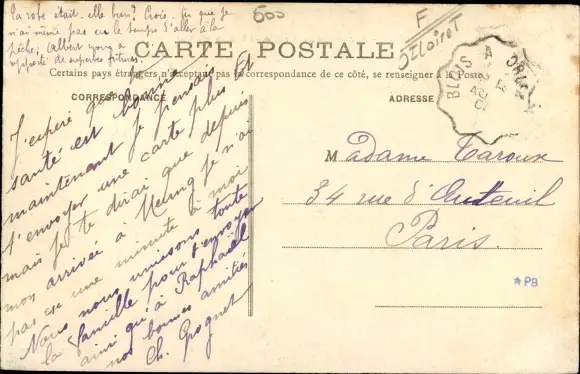 Ta robe était-elle bien? Crois-tu que je
n'ai même pas eu le temps d'aller à la
pêche; Albert nous a
apporté de superbes fritures.
600
F
d'Loiret
CARTE POSTALE
Certains pays étrangers n'acceptant pas la correspondance de ce côté, se renseigner à la Poste
CORRESPONDANCE
ADRESSE
BLOIS A
J'espère que ta
santé est bonne
maintenant je pensais
t'envoyer une carte plus tôt
mais je te dirai que depuis
mon arrivée à Meung je n'ai
pas eu une minute à moi
Nous nous unissons toute
la famille pour t'envoyer
ainsi qu'à Raphaël
nos bonnes amitiés
Ch. Grognet
Madame Taroux
34 rue d'Auteuil
Paris.
*PB